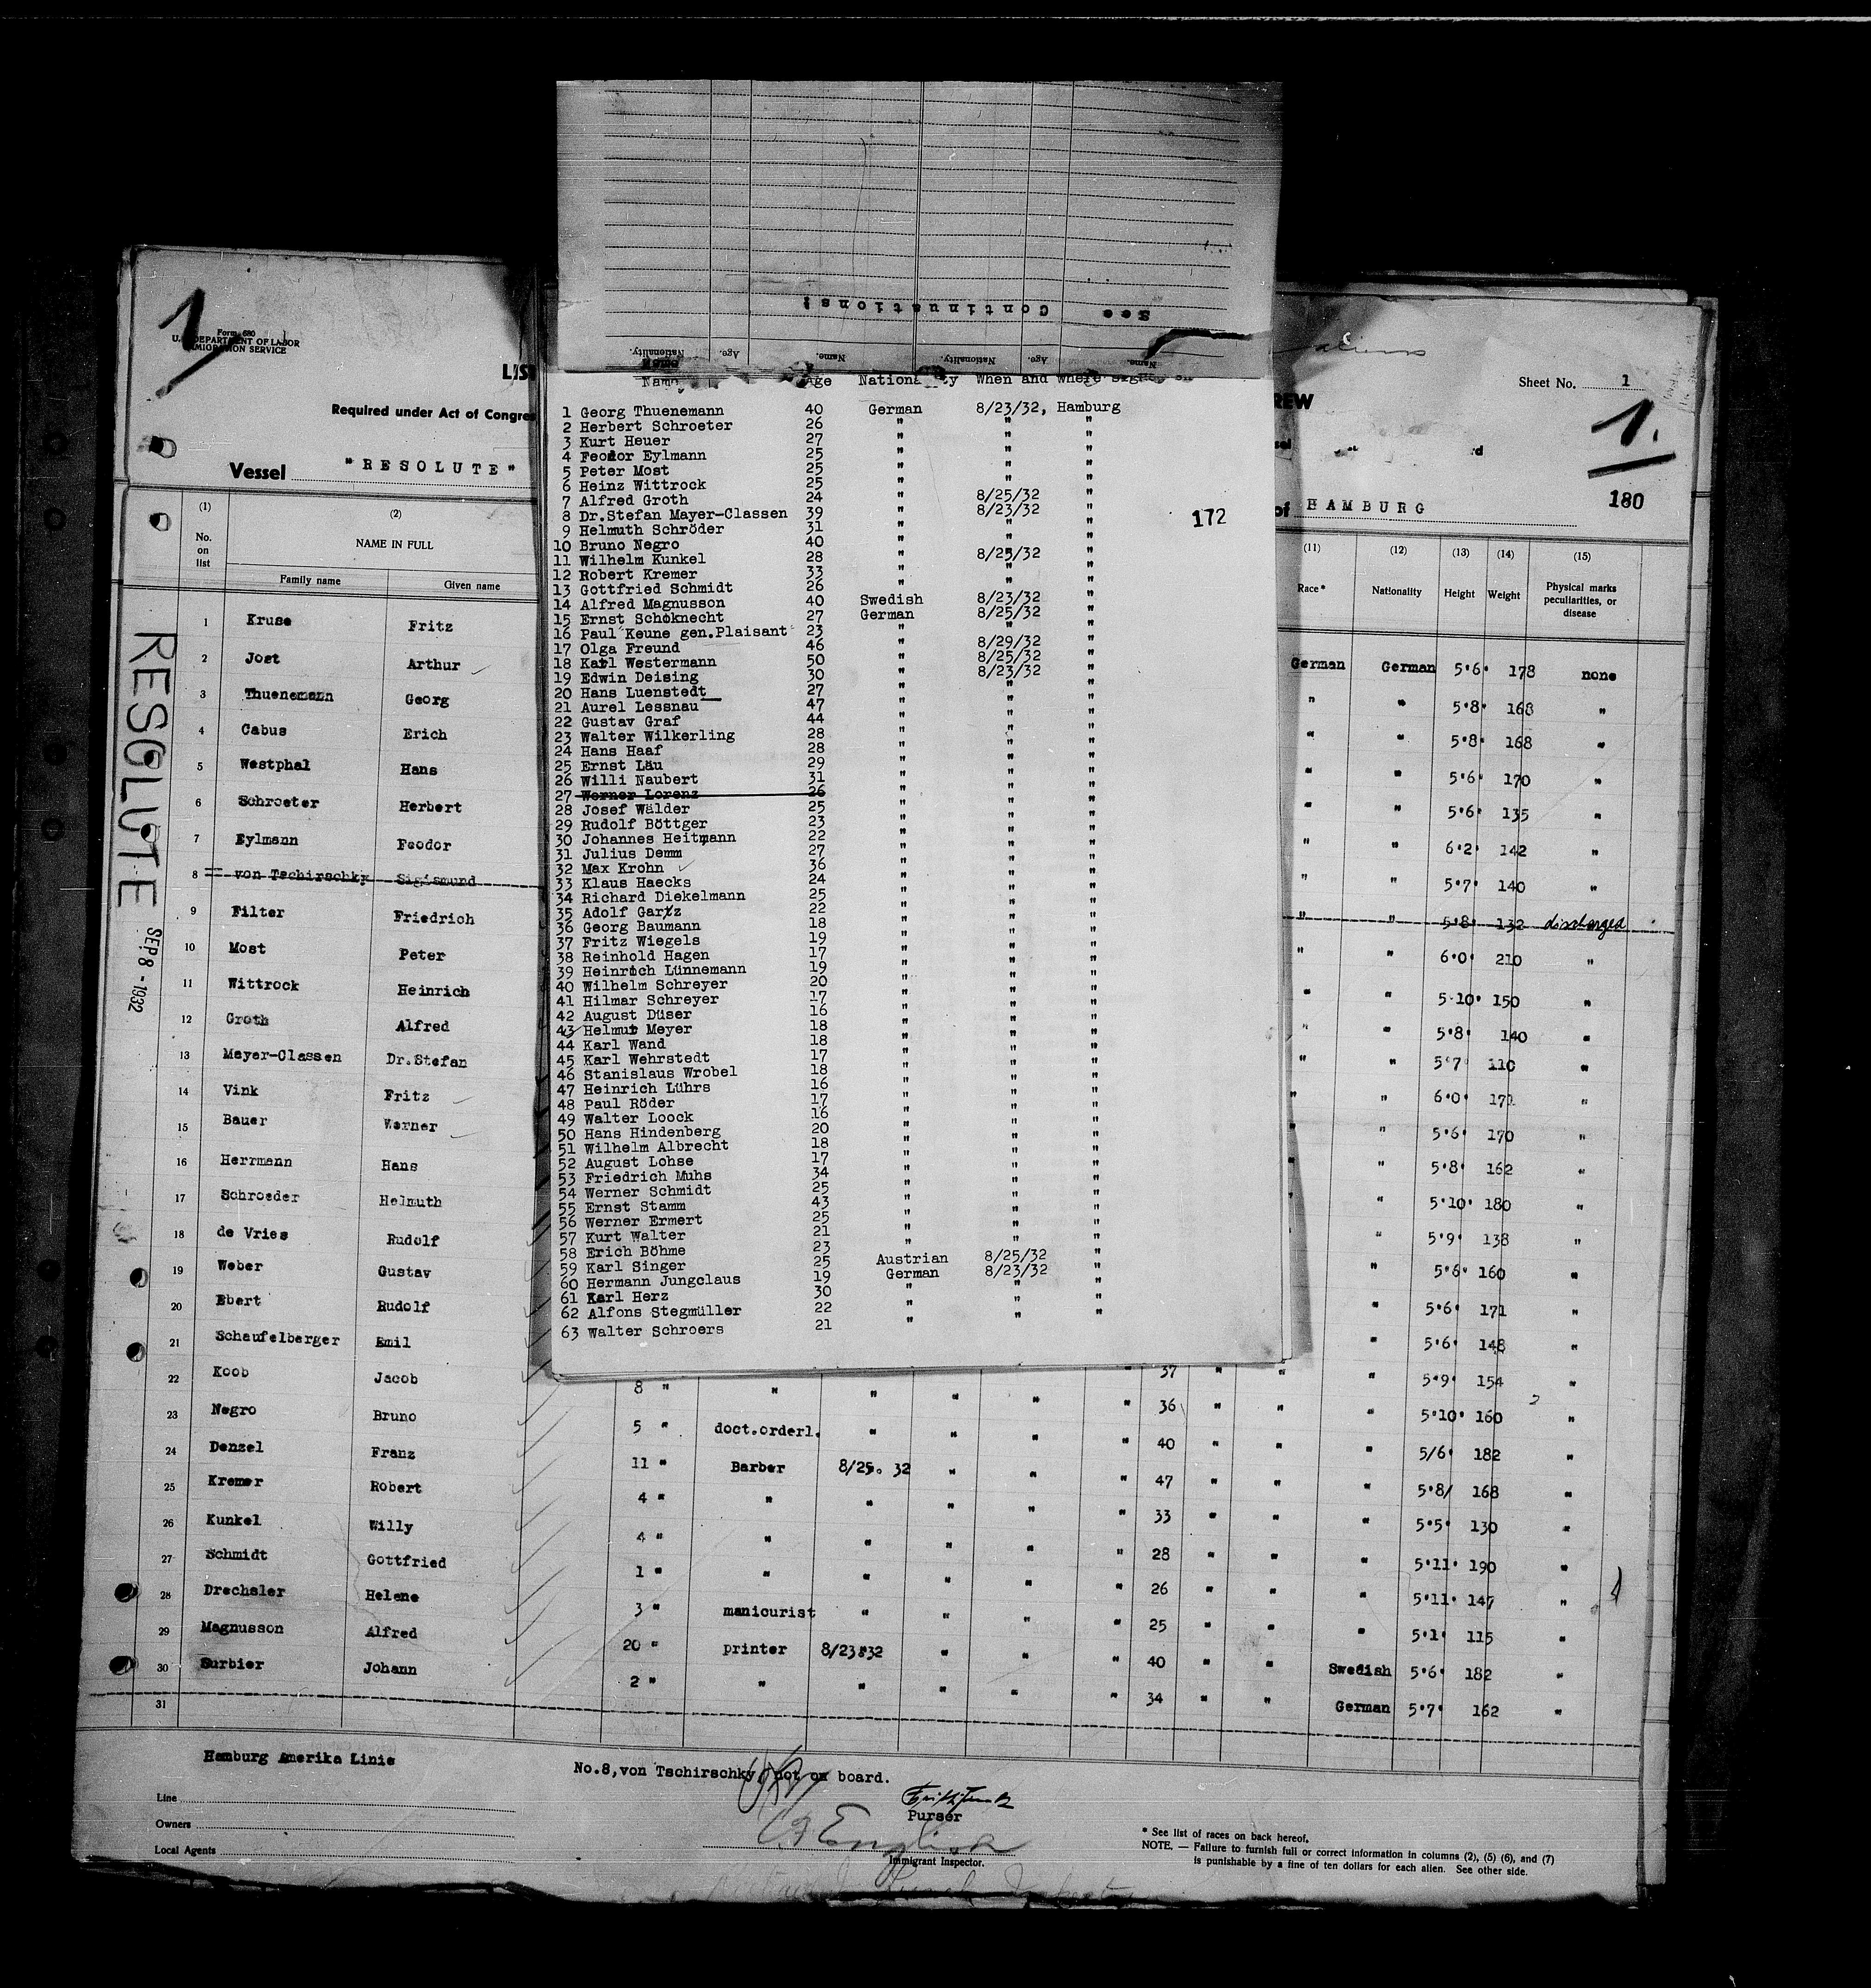 See Continuations!
Name. Age. Nationality. Name. Age. Nationality.
Name Age Nationality When and where
1 Georg Thuenemann 40 German 8/23/32, Hamburg
2 Herbert Schroeter 26 " " "
3 Kurt Heuer 27 " " "
4 Feodor Eylmann 25 " " "
5 Peter Most 25 " " "
6 Heinz Wittrock 25 " " "
7 Alfred Groth 24 " 8/25/32 "
8 Dr.Stefan Mayer-Classen 39 " 8/23/32 "
9 Helmuth Schröder 31 " " "
10 Bruno Negro 40 " " "
11 Wilhelm Kunkel 28 " 8/25/32 "
12 Robert Kremer 33 " " "
13 Gottfried Schmidt 26 " " "
14 Alfred Magnusson 40 Swedish 8/23/32 "
15 Ernst Schoknecht 27 German 8/25/32 "
16 Paul Keune gen.Plaisant 23 " " "
17 Olga Freund 46 " 8/29/32 "
18 Karl Westermann 50 " 8/25/32 "
19 Edwin Deising 30 " 8/23/32 "
20 Hans Luenstedt 27 " " "
21 Aurel Lessnau 47 " " "
22 Gustav Graf 44 " " "
23 Walter Wilkerling 28 " " "
24 Hans Haaf 28 " " "
25 Ernst Läu 29 " " "
26 Willi Naubert 31 " " "
27 Werner Lorenz 26 " " "
28 Josef Wälder 25 " " "
29 Rudolf Böttger 23 " " "
30 Johannes Heitmann 22 " " "
31 Julius Demm 27 " " "
32 Max Krohn 36 " " "
33 Klaus Haecks 24 " " "
34 Richard Diekelmann 25 " " "
35 Adolf Gartz 22 " " "
36 Georg Baumann 18 " " "
37 Fritz Wiegels 19 " " "
38 Reinhold Hagen 17 " " "
39 Heinrich Lünnemann 19 " " "
40 Wilhelm Schreyer 20 " " "
41 Hilmar Schreyer 17 " " "
42 August Düser 16 " " "
43 Helmut Meyer 18 " " "
44 Karl Wand 18 " " "
45 Karl Wehrstedt 17 " " "
46 Stanislaus Wrobel 18 " " "
47 Heinrich Lührs 16 " " "
48 Paul Röder 17 " " "
49 Walter Loock 16 " " "
50 Hans Hindenberg 20 " " "
51 Wilhelm Albrecht 18 " " "
52 August Lohse 17 " " "
53 Friedrich Muhs 34 " " "
54 Werner Schmidt 25 " " "
55 Ernst Stamm 43 " " "
56 Werner Ermert 25 " " "
57 Kurt Walter 21 " " "
58 Erich Böhme 23 " " "
59 Karl Singer 25 Austrian 8/25/32 "
60 Hermann Jungclaus 19 German 8/23/32 "
61 Karl Herz 30 " " "
62 Alfons Stegmüller 22 " " "
63 Walter Schroers 21 "
172
1
Form 680
U. S. DEPARTMENT OF LABOR
IMMIGRATION SERVICE
LIST
REW
Sheet No. 1
1.
Required under Act of Congres
Vessel "RESOLUTE"
of HAMBURG
180
(1) (2) (11) (12) (13) (14) (15)
No. on list
NAME IN FULL
Family name Given name
Race* Nationality Height Weight Physical marks peculiarities, or disease
RESOLUTE SEP 8 - 1932
1 Kruse Fritz German German 5'6" 178 none
2 Jost Arthur " " 5'8" 168 "
3 Thuenemann Georg " " 5'8" 168 "
4 Cabus Erich " " 5'6" 170 "
5 Westphal Hans " " 5'6" 135 "
6 Schroeter Herbert " " 6'2" 142 "
7 Eylmann Feodor " " 5'7" 140 "
8 von Tschirschky Sigismund " " 5'8" 132 discharged
9 Filter Friedrich " " 6'0" 210 "
10 Most Peter " " 5'10" 150 "
11 Wittrock Heinrich " " 5'8" 140 "
12 Groth Alfred " " 5'7" 110 "
13 Mayer-Classen Dr.Stefan " " 6'0" 171 "
14 Vink Fritz " " 5'6" 170 "
15 Bauer Werner " " 5'8" 162 "
16 Herrmann Hans " " 5'10" 180 "
17 Schroeder Helmuth " 5'9" 138 "
18 de Vries Rudolf " 5'6" 160 "
19 Weber Gustav " 5'6" 171 "
20 Ebert Rudolf " 5'6" 148 "
21 Schaufelberger Emil 8 " " " " " " 37 " " " 5'9" 154 "
22 Koob Jacob 5 " " " " " 36 " " " 5'10" 160 "
23 Negro Bruno doct.orderl. " " " " 40 " " " 5/6" 182 "
24 Denzel Franz 11 " Barber 8/25. 32 " " " 47 " " " 5'8/ 168 "
25 Kremer Robert 4 " " " " " " 33 " " " 5'5" 130 "
26 Kunkel Willy 4 " " " " " " 28 " " " 5'11" 190 "
27 Schmidt Gottfried 1 " " " " " " 26 " " " 5'11" 147 "
28 Drechsler Helene 3 " manicurist " " " " 25 " " " 5'1" 115 "
29 Magnusson Alfred 20 " printer 8/23:32 " " " 40 " " Swedish 5'6" 182 "
30 Surbier Johann 2 " " " " " " 34 " " German 5'7" 162 "
31
Hamburg Amerika Linie
No.8,von Tschirschky, not on board.
Purser
Line
Owners
Local Agents
English
Immigrant Inspector.
* See list of races on back hereof.
NOTE. — Failure to furnish full or correct information in columns (2), (5) (6), and (7)
is punishable by a fine of ten dollars for each alien. See other side.